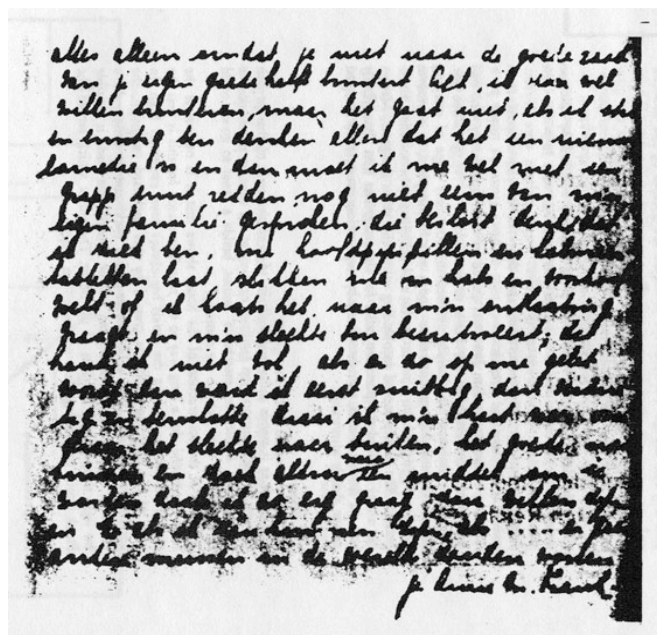 alles alleen omdat je niet naar de goede raad
van je eigen goede helft luistert. Ach, ik zou wel
willen luisteren, maar het gaat niet, als ik stil
en ernstig ben denken allen dat het een nieuwe
comedie is en dan moet ik me wel met een
grapje eruit redden nog niet eens van mijn
eigen familie gesproken, die beslist denkt dat
ik ziek ben, me hoofdpijnpillen en
tabletten laat slikken me in hals en voorhoofd
voelt of ik koorts heb, naar m'n ontlasting
vraagt en m'n slechte bui becritiseert, dat
houd ik niet vol, als er zo op me gelet
wordt dan word ik eerst snibbig, dan
en tenslotte draai ik m'n hart weer om
draai het slechte naar buiten, het goede naar
binnen en zoek aldoor naar een middel om te
worden zoals ik zo erg graag zou willen zijn
en zoals ik zou kunnen zijn, als .... er geen
andere mensen in de wereld zouden wonen
je Anne M. Frank.